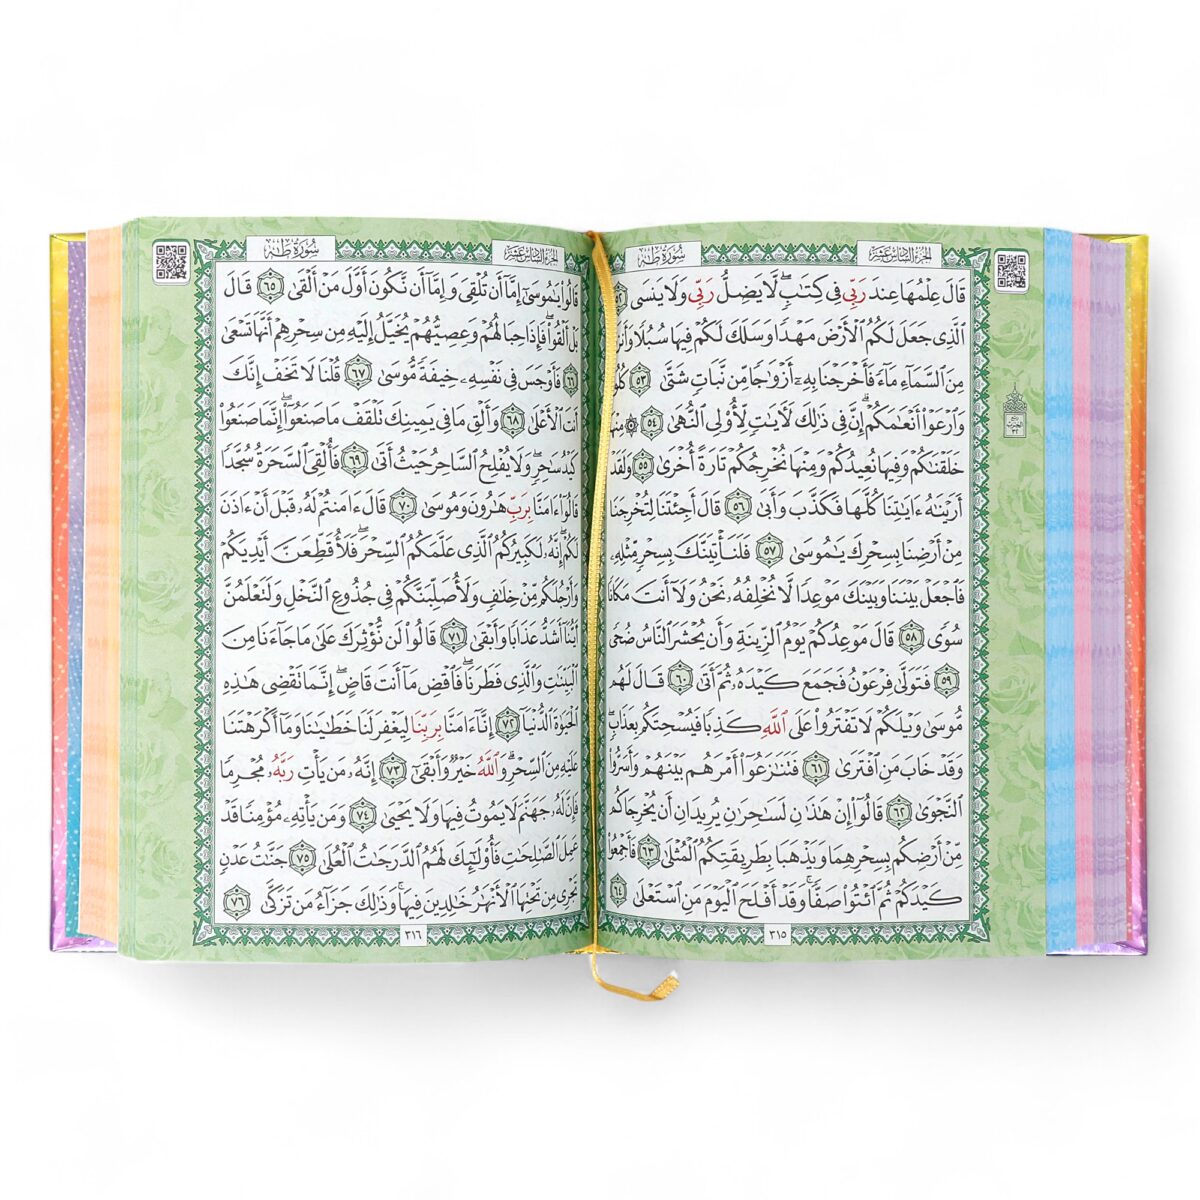 سُورَةُ طه
الجُزْءُ السَّادِسَ عَشَرَ
قَالَ عِلْمُهَا عِندَ رَبِّي فِي كِتَٰبٍ ۖ لَّا يَضِلُّ رَبِّي وَلَا يَنسَى ٥٢
ٱلَّذِي جَعَلَ لَكُمُ ٱلْأَرْضَ مَهْدًا وَسَلَكَ لَكُمْ فِيهَا سُبُلًا وَأَنزَ
مِنَ ٱلسَّمَآءِ مَآءً فَأَخْرَجْنَا بِهِۦٓ أَزْوَٰجًا مِّن نَّبَاتٍ شَتَّىٰ ٥٣ كُلُو
وَٱرْعَوْا۟ أَنْعَٰمَكُمْ ۗ إِنَّ فِي ذَٰلِكَ لَءَايَٰتٍ لِّأُو۟لِي ٱلنُّهَىٰ ٥٤ ۞ مِنْهَا
خَلَقْنَٰكُمْ وَفِيهَا نُعِيدُكُمْ وَمِنْهَا نُخْرِجُكُمْ تَارَةً أُخْرَىٰ ٥٥ وَلَقَدْ
أَرَيْنَٰهُ ءَايَٰتِنَا كُلَّهَا فَكَذَّبَ وَأَبَىٰ ٥٦ قَالَ أَجِئْتَنَا لِتُخْرِجَنَا
مِنْ أَرْضِنَا بِسِحْرِكَ يَٰمُوسَىٰ ٥٧ فَلَنَأْتِيَنَّكَ بِسِحْرٍ مِّثْلِهِۦ
فَٱجْعَلْ بَيْنَنَا وَبَيْنَكَ مَوْعِدًا لَّا نُخْلِفُهُۥ نَحْنُ وَلَآ أَنتَ مَكَانًا
سُوًى ٥٨ قَالَ مَوْعِدُكُمْ يَوْمُ ٱلزِّينَةِ وَأَن يُحْشَرَ ٱلنَّاسُ ضُحًى
٥٩ فَتَوَلَّىٰ فِرْعَوْنُ فَجَمَعَ كَيْدَهُۥ ثُمَّ أَتَىٰ ٦٠ قَالَ لَهُم
مُّوسَىٰ وَيْلَكُمْ لَا تَفْتَرُوا۟ عَلَى ٱللَّهِ كَذِبًا فَيُسْحِتَكُم بِعَذَابٍ ۖ
وَقَدْ خَابَ مَنِ ٱفْتَرَىٰ ٦١ فَتَنَٰزَعُوٓا۟ أَمْرَهُم بَيْنَهُمْ وَأَسَرُّوا۟
ٱلنَّجْوَىٰ ٦٢ قَالُوٓا۟ إِنْ هَٰذَٰنِ لَسَٰحِرَٰنِ يُرِيدَانِ أَن يُخْرِجَاكُم
مِّنْ أَرْضِكُم بِسِحْرِهِمَا وَيَذْهَبَا بِطَرِيقَتِكُمُ ٱلْمُثْلَىٰ ٦٣ فَأَجْمِعُوا۟
كَيْدَكُمْ ثُمَّ ٱئْتُوا۟ صَفًّا ۚ وَقَدْ أَفْلَحَ ٱلْيَوْمَ مَنِ ٱسْتَعْلَىٰ ٦٤
٣١٥
سُورَةُ طه
الجُزْءُ السَّادِسَ عَشَرَ
قَالُوا۟ يَٰمُوسَىٰٓ إِمَّآ أَن تُلْقِيَ وَإِمَّآ أَن نَّكُونَ أَوَّلَ مَنْ أَلْقَىٰ ٦٥ قَالَ
بَلْ أَلْقُوا۟ ۖ فَإِذَا حِبَالُهُمْ وَعِصِيُّهُمْ يُخَيَّلُ إِلَيْهِ مِن سِحْرِهِمْ أَنَّهَا تَسْعَىٰ
٦٦ فَأَوْجَسَ فِي نَفْسِهِۦ خِيفَةً مُّوسَىٰ ٦٧ قُلْنَا لَا تَخَفْ إِنَّكَ
أَنتَ ٱلْأَعْلَىٰ ٦٨ وَأَلْقِ مَا فِي يَمِينِكَ تَلْقَفْ مَا صَنَعُوٓا۟ ۖ إِنَّمَا صَنَعُوا۟
كَيْدُ سَٰحِرٍ ۖ وَلَا يُفْلِحُ ٱلسَّاحِرُ حَيْثُ أَتَىٰ ٦٩ فَأُلْقِيَ ٱلسَّحَرَةُ سُجَّدًا
قَالُوٓا۟ ءَامَنَّا بِرَبِّ هَٰرُونَ وَمُوسَىٰ ٧٠ قَالَ ءَامَنتُمْ لَهُۥ قَبْلَ أَنْ ءَاذَنَ
لَكُمْ ۖ إِنَّهُۥ لَكَبِيرُكُمُ ٱلَّذِي عَلَّمَكُمُ ٱلسِّحْرَ ۖ فَلَأُقَطِّعَنَّ أَيْدِيَكُمْ
وَأَرْجُلَكُم مِّنْ خِلَٰفٍ وَلَأُصَلِّبَنَّكُمْ فِي جُذُوعِ ٱلنَّخْلِ وَلَتَعْلَمُنَّ
أَيُّنَآ أَشَدُّ عَذَابًا وَأَبْقَىٰ ٧١ قَالُوا۟ لَن نُّؤْثِرَكَ عَلَىٰ مَا جَآءَنَا مِنَ
ٱلْبَيِّنَٰتِ وَٱلَّذِي فَطَرَنَا ۖ فَٱقْضِ مَآ أَنتَ قَاضٍ ۖ إِنَّمَا تَقْضِي هَٰذِهِ
ٱلْحَيَوٰةَ ٱلدُّنْيَآ ٧٢ إِنَّآ ءَامَنَّا بِرَبِّنَا لِيَغْفِرَ لَنَا خَطَٰيَٰنَا وَمَآ أَكْرَهْتَنَا
عَلَيْهِ مِنَ ٱلسِّحْرِ ۗ وَٱللَّهُ خَيْرٌ وَأَبْقَىٰٓ ٧٣ إِنَّهُۥ مَن يَأْتِ رَبَّهُۥ مُجْرِمًا
فَإِنَّ لَهُۥ جَهَنَّمَ لَا يَمُوتُ فِيهَا وَلَا يَحْيَىٰ ٧٤ وَمَن يَأْتِهِۦ مُؤْمِنًا قَدْ
عَمِلَ ٱلصَّٰلِحَٰتِ فَأُو۟لَٰٓئِكَ لَهُمُ ٱلدَّرَجَٰتُ ٱلْعُلَىٰ ٧٥ جَنَّٰتُ عَدْنٍ
تَجْرِي مِن تَحْتِهَا ٱلْأَنْهَٰرُ خَٰلِدِينَ فِيهَا ۚ وَذَٰلِكَ جَزَآءُ مَن تَزَكَّىٰ ٧٦
٣١٦